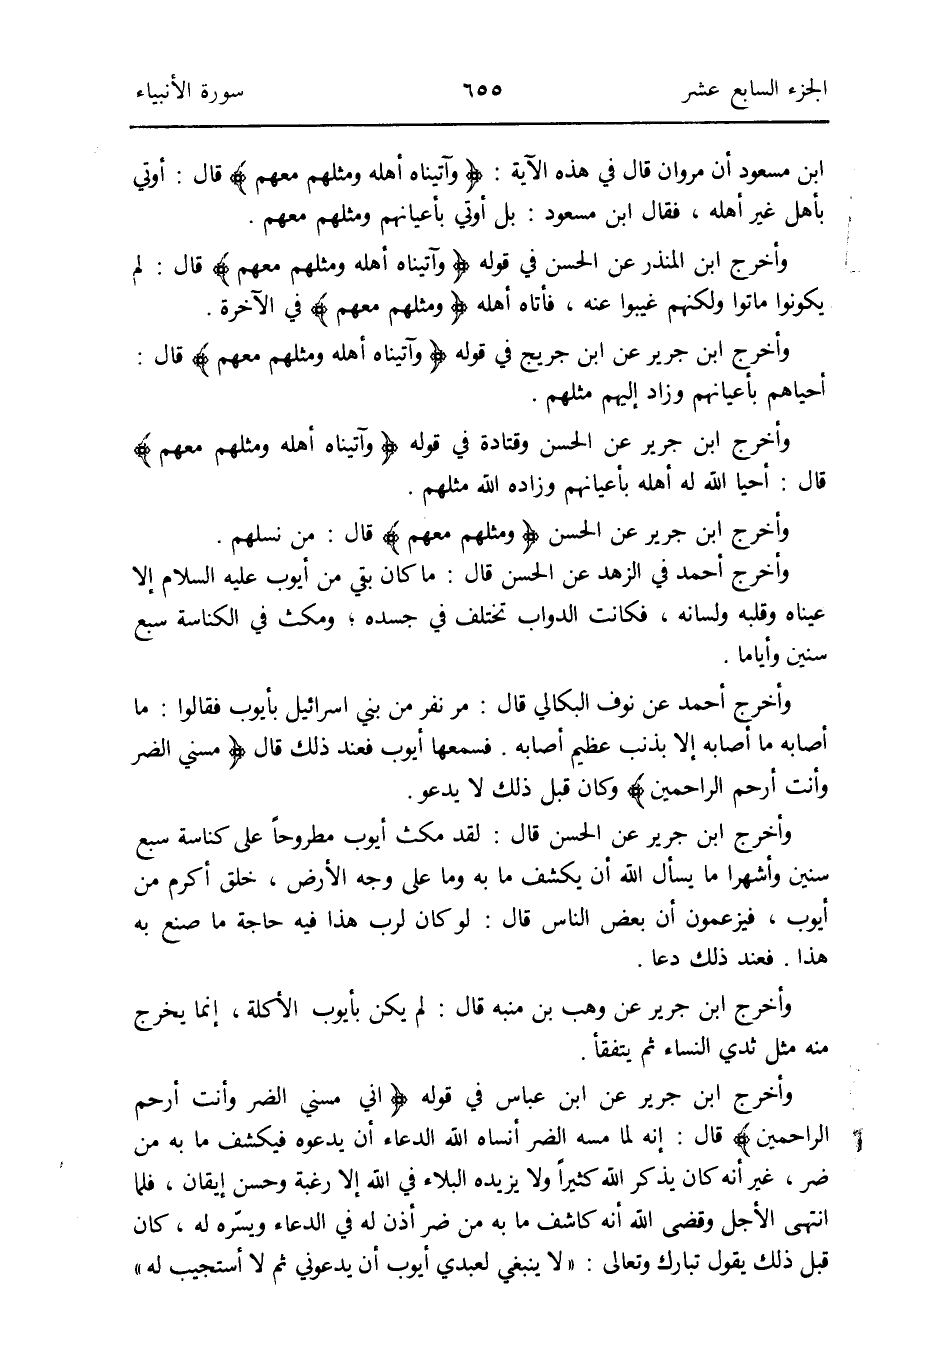 الجزء السابع عشر ٦٥٥ سورة الأنبياء
ابن مسعود أن مروان قال في هذه الآية : ﴿ وآتيناه أهله ومثلهم معهم ﴾ قال : أوتي
بأهل غير أهله ، فقال ابن مسعود : بل أوتي بأعيانهم ومثلهم معهم .
وأخرج ابن المنذر عن الحسن في قوله ﴿ وآتيناه أهله ومثلهم معهم ﴾ قال : لم
يكونوا ماتوا ولكنهم غيبوا عنه ، فأتاه أهله ﴿ ومثلهم معهم ﴾ في الآخرة .
وأخرج ابن جرير عن ابن جريج في قوله ﴿ وآتيناه أهله ومثلهم معهم ﴾ قال :
أحياهم بأعيانهم وزاد إليهم مثلهم .
وأخرج ابن جرير عن الحسن وقتادة في قوله ﴿ وآتيناه أهله ومثلهم معهم ﴾
قال : أحيا الله له أهله بأعيانهم وزاده الله مثلهم .
وأخرج ابن جرير عن الحسن ﴿ ومثلهم معهم ﴾ قال : من نسلهم .
وأخرج أحمد في الزهد عن الحسن قال : ما كان بقي من أيوب عليه السلام إلا
عيناه وقلبه ولسانه ، فكانت الدواب تختلف في جسده ؛ ومكث في الكناسة سبع
سنين وأياما .
وأخرج أحمد عن نوف البكالي قال : مر نفر من بني اسرائيل بأيوب فقالوا : ما
أصابه ما أصابه إلا بذنب عظيم أصابه . فسمعها أيوب فعند ذلك قال ﴿ مسني الضر
وأنت أرحم الراحمين ﴾ وكان قبل ذلك لا يدعو .
وأخرج ابن جرير عن الحسن قال : لقد مكث أيوب مطروحاً على كناسة سبع
سنين وأشهرا ما يسأل الله أن يكشف ما به وما على وجه الأرض ، خلق أكرم من
أيوب ، فيزعمون أن بعض الناس قال : لو كان لرب هذا فيه حاجة ما صنع به
هذا . فعند ذلك دعا .
وأخرج ابن جرير عن وهب بن منبه قال : لم يكن بأيوب الأكلة ، إنما يخرج
منه مثل ثدي النساء ثم يتفقأ .
وأخرج ابن جرير عن ابن عباس في قوله ﴿ اني مسني الضر وأنت أرحم
الراحمين ﴾ قال : إنه لما مسه الضر أنساه الله الدعاء أن يدعوه فيكشف ما به من
ضر ، غير أنه كان يذكر الله كثيراً ولا يزيده البلاء في الله إلا رغبة وحسن إيقان ، فلما
انتهى الأجل وقضى الله أنه كاشف ما به من ضر أذن له في الدعاء ويسّره له ، كان
قبل ذلك يقول تبارك وتعالى : « لا ينبغي لعبدي أيوب أن يدعوني ثم لا أستجيب له »